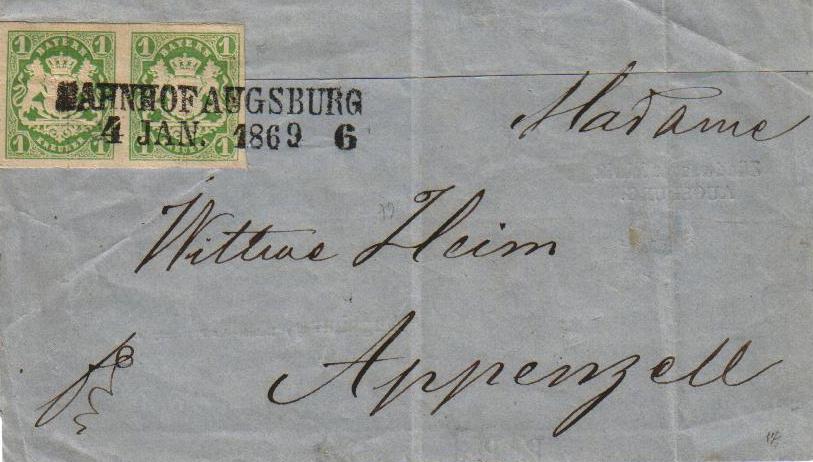 1 BAYERN 1 1 BAYERN 1
BAHNHOF AUGSBURG
4 JAN. 1869 6
1 KREUZER 1 1 KREUZER 1
Madame
Wittwe Heim
Appenzell